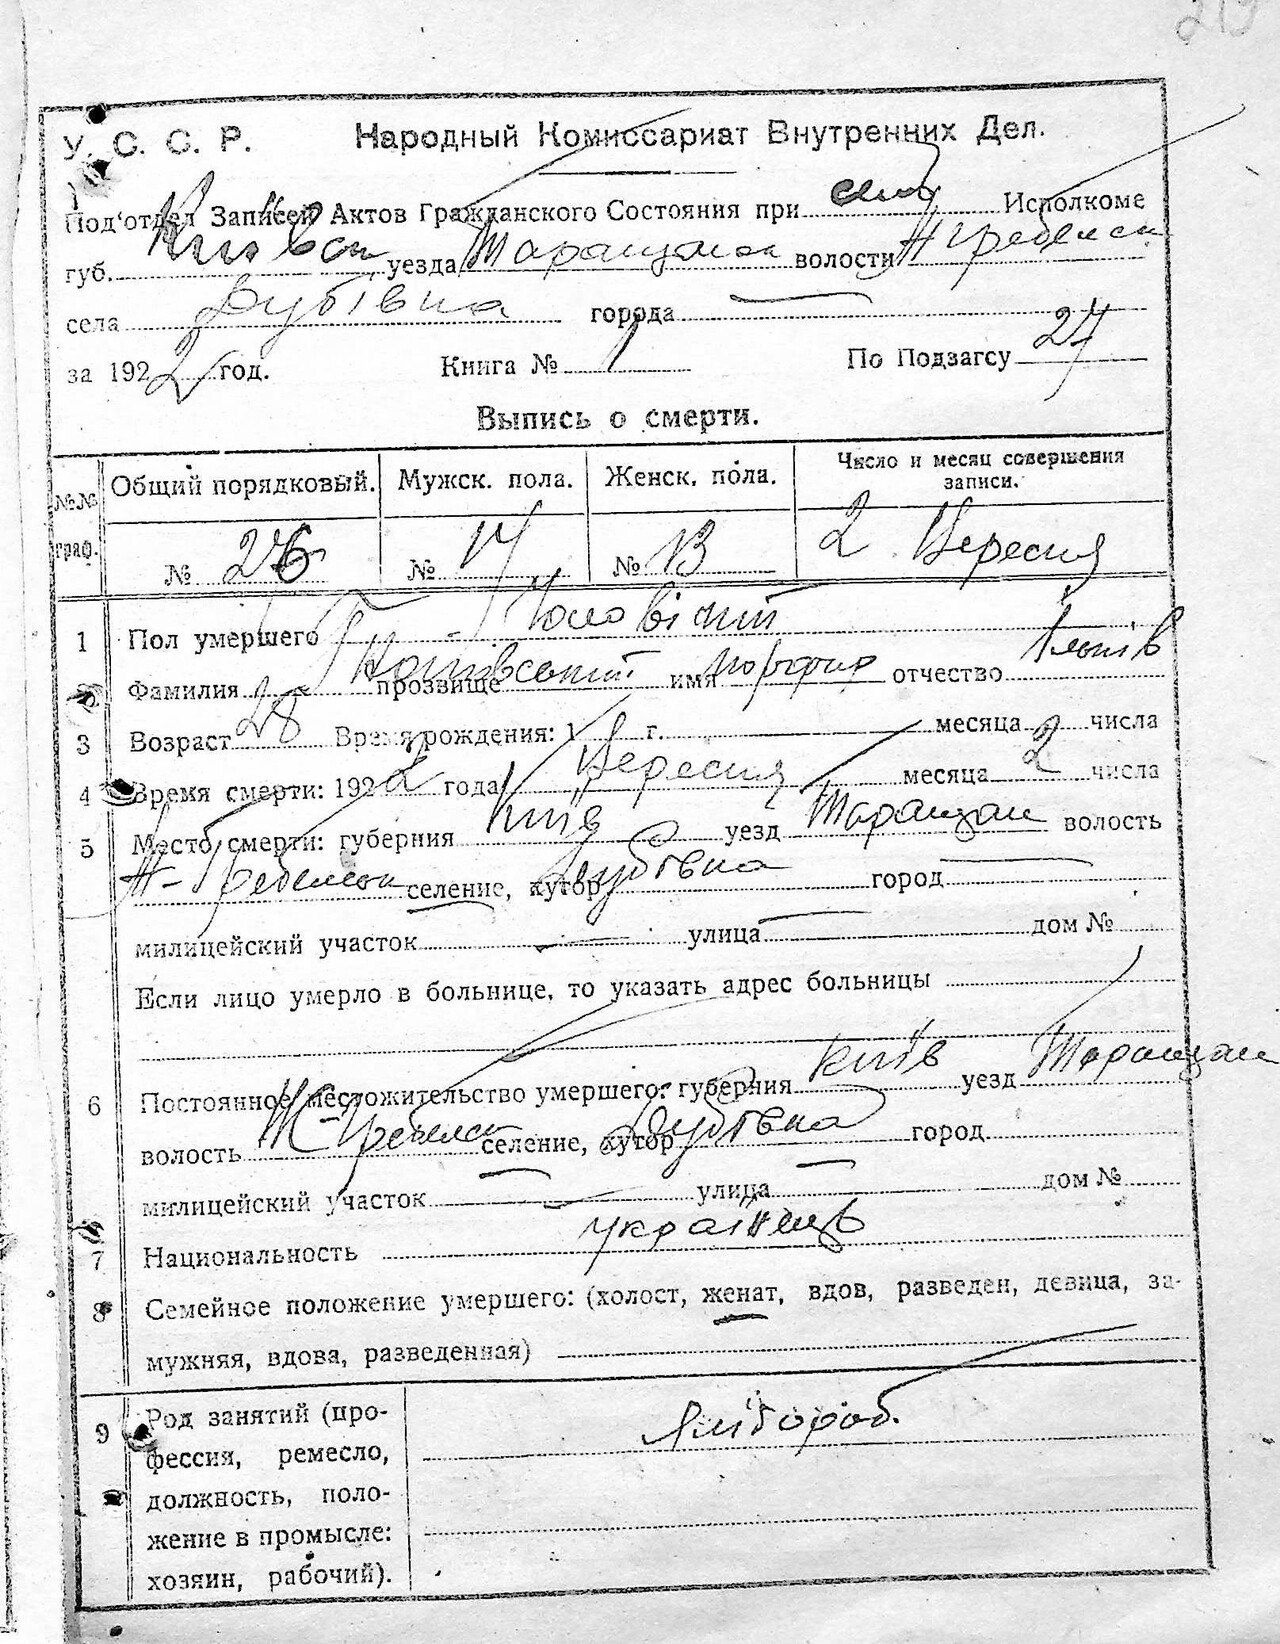 219
У. С. С. Р. Народный Комиссариат Внутренних Дел.
Под'отдел Записей Актов Гражданского Состояния при Исполкоме
губ. Київськ уезда Таращанск волости Ж Гребельск
села Дубівка города —
за 1922 год. Книга № 1 По Подзагсу 27
Выпись о смерти.
№№ граф. Общий порядковый. Мужск. пола. Женск. пола. Число и месяц совершения записи.
№ 26 № 14 № 13 2 Вересня
1 Пол умершего Чоловічий
Фамилия прозвище имя отчество
3 Возраст 28 Время рождения: 1 г. месяца числа
4 Время смерти: 1922 года Вересня месяца 2 числа
5 Место смерти: губерния Київ уезд Таращан волость
Ж-Гребельск селение, хутор Дубівка город —
милицейский участок — улица — дом №
Если лицо умерло в больнице, то указать адрес больницы
6 Постоянное местожительство умершего: губерния Київ уезд Таращан
волость Ж-Гребельск селение, хутор Дубівка город
милицейский участок — улица — дом №
7 Национальность українець
8 Семейное положение умершего: (холост, женат, вдов, разведен, девица, за-
мужняя, вдова, разведенная)
9 Род занятий (про- хлібороб.
фессия, ремесло,
должность, поло-
жение в промысле:
хозяин, рабочий).